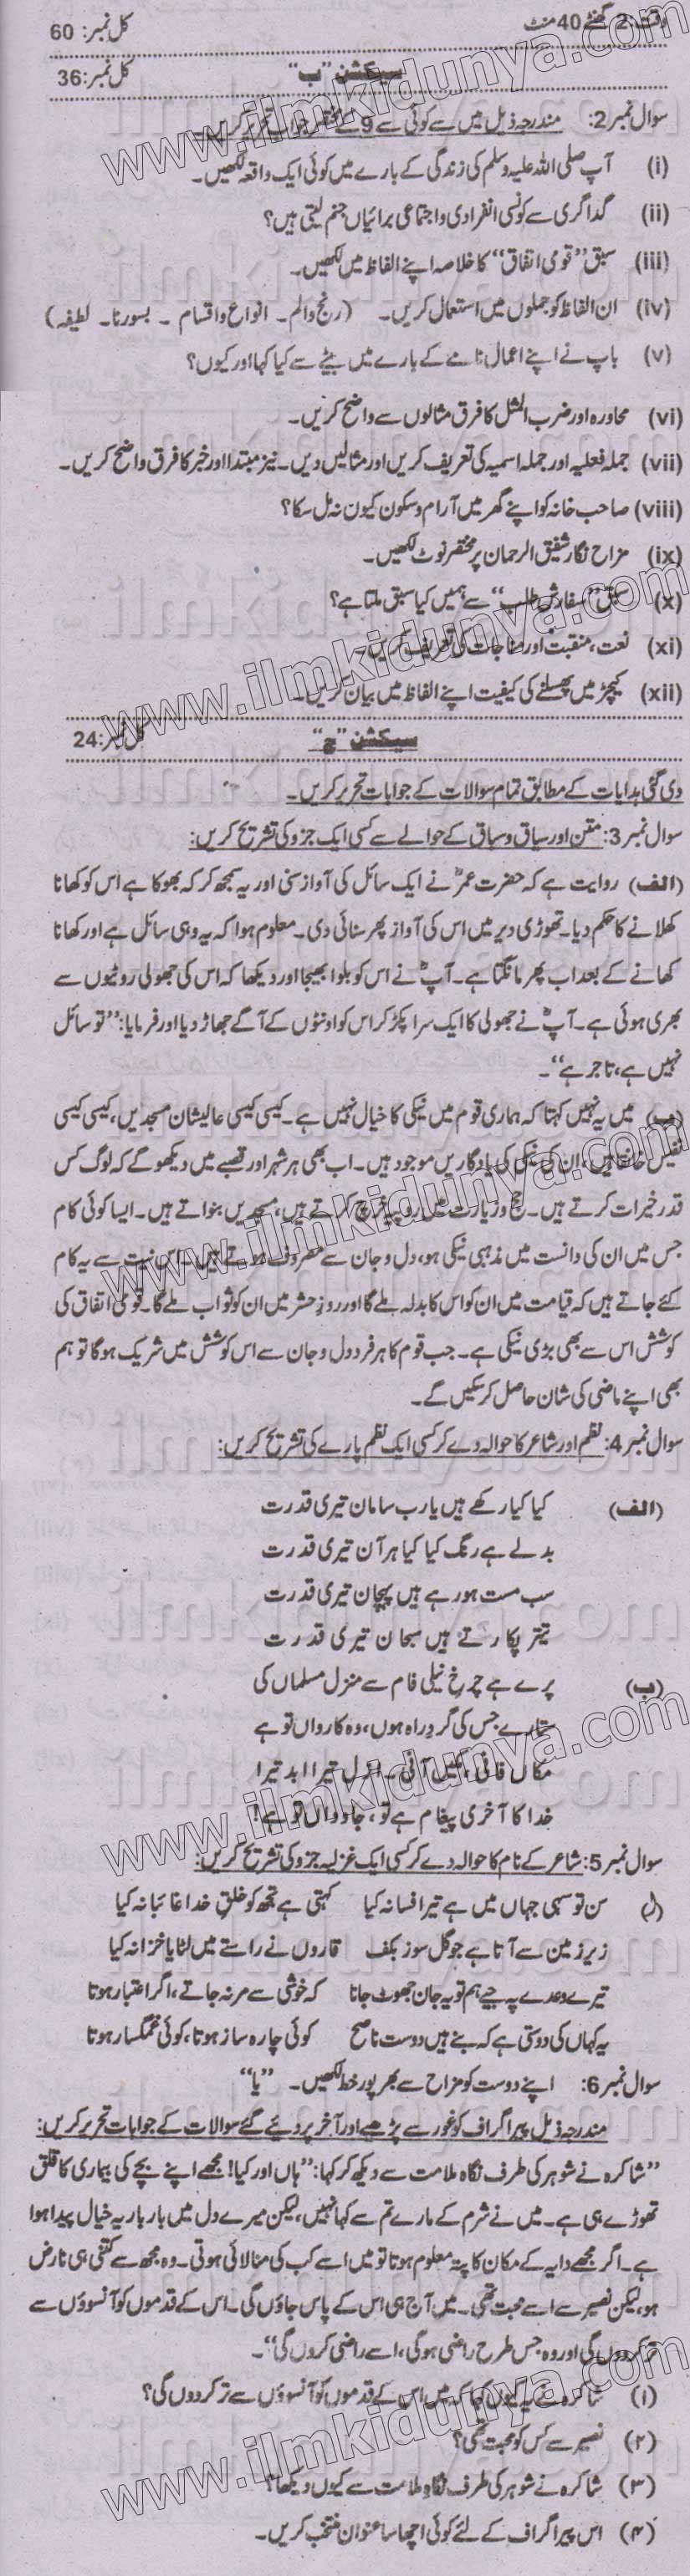 وقت: 2 گھنٹے 40 منٹ کل نمبر: 60
سیکشن "ب" کل نمبر: 36
سوال نمبر 2: مندرجہ ذیل میں سے کوئی سے 9 کے مختصر جوابات تحریر کریں۔
(i) آپ صلی اللہ علیہ وسلم کی زندگی کے بارے میں کوئی ایک واقعہ لکھیں۔
(ii) گداگری سے کونسی انفرادی و اجتماعی برائیاں جنم لیتی ہیں؟
(iii) سبق "قومی اتفاق" کا خلاصہ اپنے الفاظ میں لکھیں۔
(iv) ان الفاظ کو جملوں میں استعمال کریں۔ (رنج و الم۔ انواع و اقسام ۔ بسورنا۔ لطیفہ)
(v) باپ نے اپنے اعمال نامے کے بارے میں بیٹے سے کیا کہا اور کیوں؟
(vi) محاورہ اور ضرب المثل کا فرق مثالوں سے واضح کریں۔
(vii) جملہ فعلیہ اور جملہ اسمیہ کی تعریف کریں اور مثالیں دیں۔ نیز مبتدا اور خبر کا فرق واضح کریں۔
(viii) صاحب خانہ کو اپنے گھر میں آرام و سکون کیوں نہ مل سکا؟
(ix) مزاح نگار شفیق الرحمان پر مختصر نوٹ لکھیں۔
(x) سبق "سفارش طلب" سے ہمیں کیا سبق ملتا ہے؟
(xi) نعت، منقبت اور مناجات کی تعریف کریں۔
(xii) کیچڑ میں پھسلنے کی کیفیت اپنے الفاظ میں بیان کریں۔
سیکشن "ج" کل نمبر: 24
دی گئی ہدایات کے مطابق تمام سوالات کے جوابات تحریر کریں۔
سوال نمبر 3: متن اور سیاق و سباق کے حوالے سے کسی ایک جزو کی تشریح کریں:
(الف) روایت ہے کہ حضرت عمرؓ نے ایک سائل کی آواز سنی اور یہ سمجھ کر کہ بھوکا ہے اس کو کھانا
کھلانے کا حکم دیا۔ تھوڑی دیر میں اس کی آواز پھر سنائی دی۔ معلوم ہوا کہ یہ وہی سائل ہے اور کھانا
کھانے کے بعد اب پھر مانگتا ہے۔ آپؓ نے اس کو بلوا بھیجا اور دیکھا کہ اس کی جھولی روٹیوں سے
بھری ہوئی ہے۔ آپؓ نے جھولی کا ایک سرا پکڑ کر اس کو اونٹوں کے آگے جھاڑ دیا اور فرمایا: "تو سائل
نہیں ہے، تاجر ہے"۔
(ب) میں یہ نہیں کہتا کہ ہماری قوم میں نیکی کا خیال نہیں ہے۔ کیسی کیسی عالیشان مسجدیں، کیسی کیسی
نفیس خانقاہیں، ان کی نیکی کی یادگاریں موجود ہیں۔ اب بھی ہر شہر اور قصبے میں دیکھو گے کہ لوگ کس
قدر خیرات کرتے ہیں۔ حج و زیارت میں روپیہ خرچ کرتے ہیں، مسجدیں بنواتے ہیں۔ ایسا کوئی کام
جس میں ان کی دانست میں مذہبی نیکی ہو، دل و جان سے مصروف ہوتے ہیں۔ اس نیت سے یہ کام
کئے جاتے ہیں کہ قیامت میں ان کو اس کا بدلہ ملے گا اور روز حشر میں ان کو ثواب ملے گا۔ قومی اتفاق کی
کوشش اس سے بھی بڑی نیکی ہے۔ جب قوم کا ہر فرد دل و جان سے اس کوشش میں شریک ہوگا تو ہم
بھی اپنے ماضی کی شان حاصل کر سکیں گے۔
سوال نمبر 4: نظم اور شاعر کا حوالہ دے کر کسی ایک نظم پارے کی تشریح کریں:
(الف) کیا کیا رکھے ہیں یارب سامان تیری قدرت
بدلے ہے رنگ کیا کیا ہر آن تیری قدرت
سب مست ہو رہے ہیں پہچان تیری قدرت
تیتر پکارتے ہیں سبحان تیری قدرت
(ب) پرے ہے چرخ نیلی فام سے منزل مسلماں کی
ستارے جس کی گرد راہ ہوں، وہ کارواں تو ہے
مکاں فانی، مکیں آنی۔ ازل تیرا ابد تیرا
خدا کا آخری پیغام ہے تو، جاوداں تو ہے!
سوال نمبر 5: شاعر کے نام کا حوالہ دے کر کسی ایک غزلیہ جزو کی تشریح کریں:
سن تو سہی جہاں میں ہے تیرا فسانہ کیا کہتی ہے تجھ کو خلق خدا غائبانہ کیا
زیر زمین سے آتا ہے جو گل سوز بکف قاروں نے راستے میں لٹایا خزانہ کیا
تیرے وعدے پہ جیے ہم تو یہ جان جھوٹ جانا کہ خوشی سے مر نہ جاتے، اگر اعتبار ہوتا
یہ کہاں کی دوستی ہے کہ بنے ہیں دوست ناصح کوئی چارہ ساز ہوتا، کوئی غمگسار ہوتا
سوال نمبر 6: اپنے دوست کو مزاح سے بھرپور خط لکھیں۔ "یا"
مندرجہ ذیل پیراگراف کو غور سے پڑھیے اور آخر پر دیئے گئے سوالات کے جوابات تحریر کریں:
"شاکرہ نے شوہر کی طرف نگاہ ملامت سے دیکھ کر کہا: "ہاں اور کیا! مجھے اپنے بچے کی بیماری کا قلق
تھوڑے ہی ہے۔ میں نے شرم کے مارے تم سے کہا نہیں، لیکن میرے دل میں بار بار یہ خیال پیدا ہوا
ہے۔ اگر مجھے دایہ کے مکان کا پتہ معلوم ہوتا تو میں اسے کب کی منا لائی ہوتی۔ وہ مجھ سے کتنی ہی ناراض
ہو، لیکن نصیر سے اسے محبت تھی۔ میں آج ہی اس کے پاس جاؤں گی۔ اس کے قدموں کو آنسوؤں سے
تر کردوں گی اور وہ جس طرح راضی ہوگی، اسے راضی کروں گی"۔
(۱) شاکرہ نے یہ کیوں کہا کہ میں اس کے قدموں کو آنسوؤں سے تر کردوں گی؟
(۲) نصیر سے کس کو محبت تھی؟
(۳) شاکرہ نے شوہر کی طرف نگاہ ملامت سے کیوں دیکھا؟
(۴) اس پیراگراف کے لئے کوئی اچھا سا عنوان منتخب کریں۔
www.ilmkidunya.com